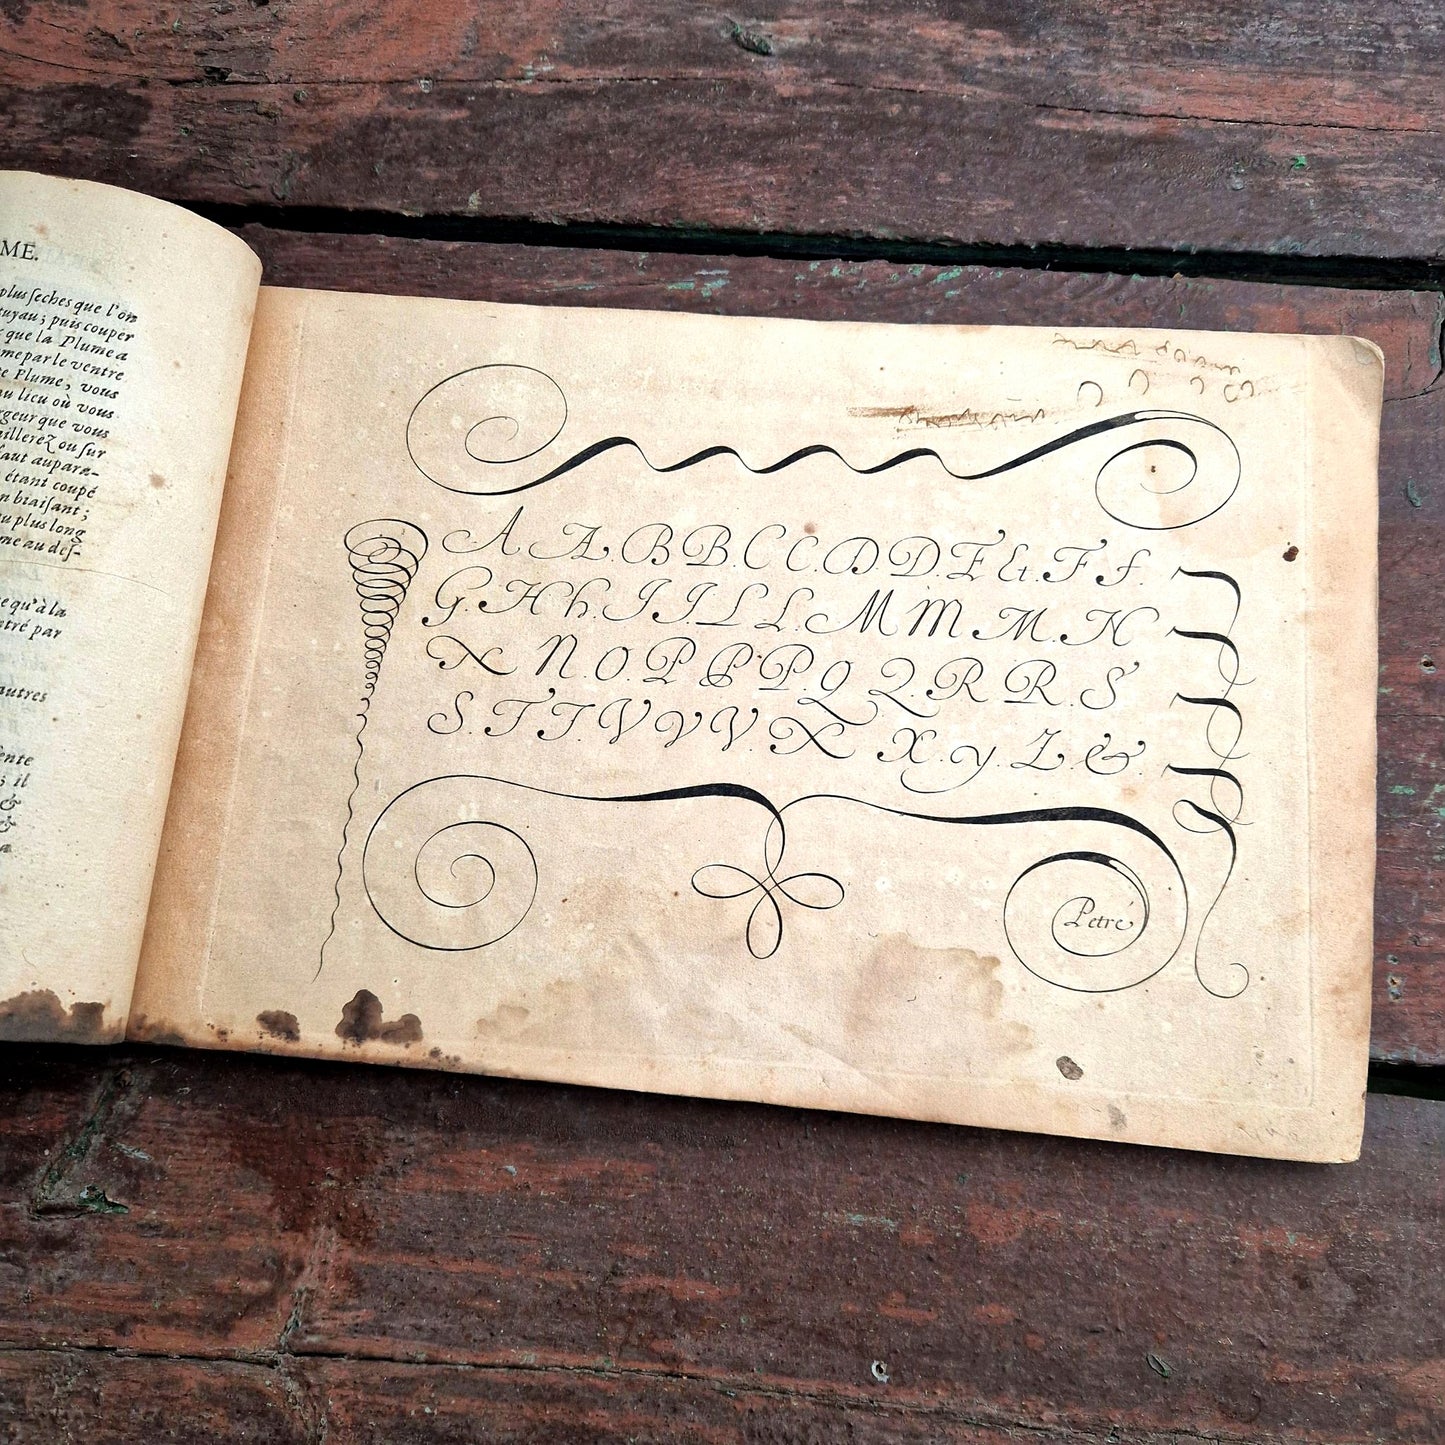 ME.
plus ſeches que l'on
tuyau ; puis couper
que la Plume a
me par le ventre
Plume ; vous
au lieu où vous
rgeur que vous
aillerez ou ſur
faut aupara-
étant coupé
n biaiſant ;
u plus long
me au deſ-
e qu'à la
ntré par
autres
ſente
s il
&
&
a
A A. B B. C C. D D. E &. F f.
G. H h. I I. L L. M M M. N
N N. O. P P P. Q Q. R R. S
S. T T. V V V. X X. y y. Z. &.
Petré